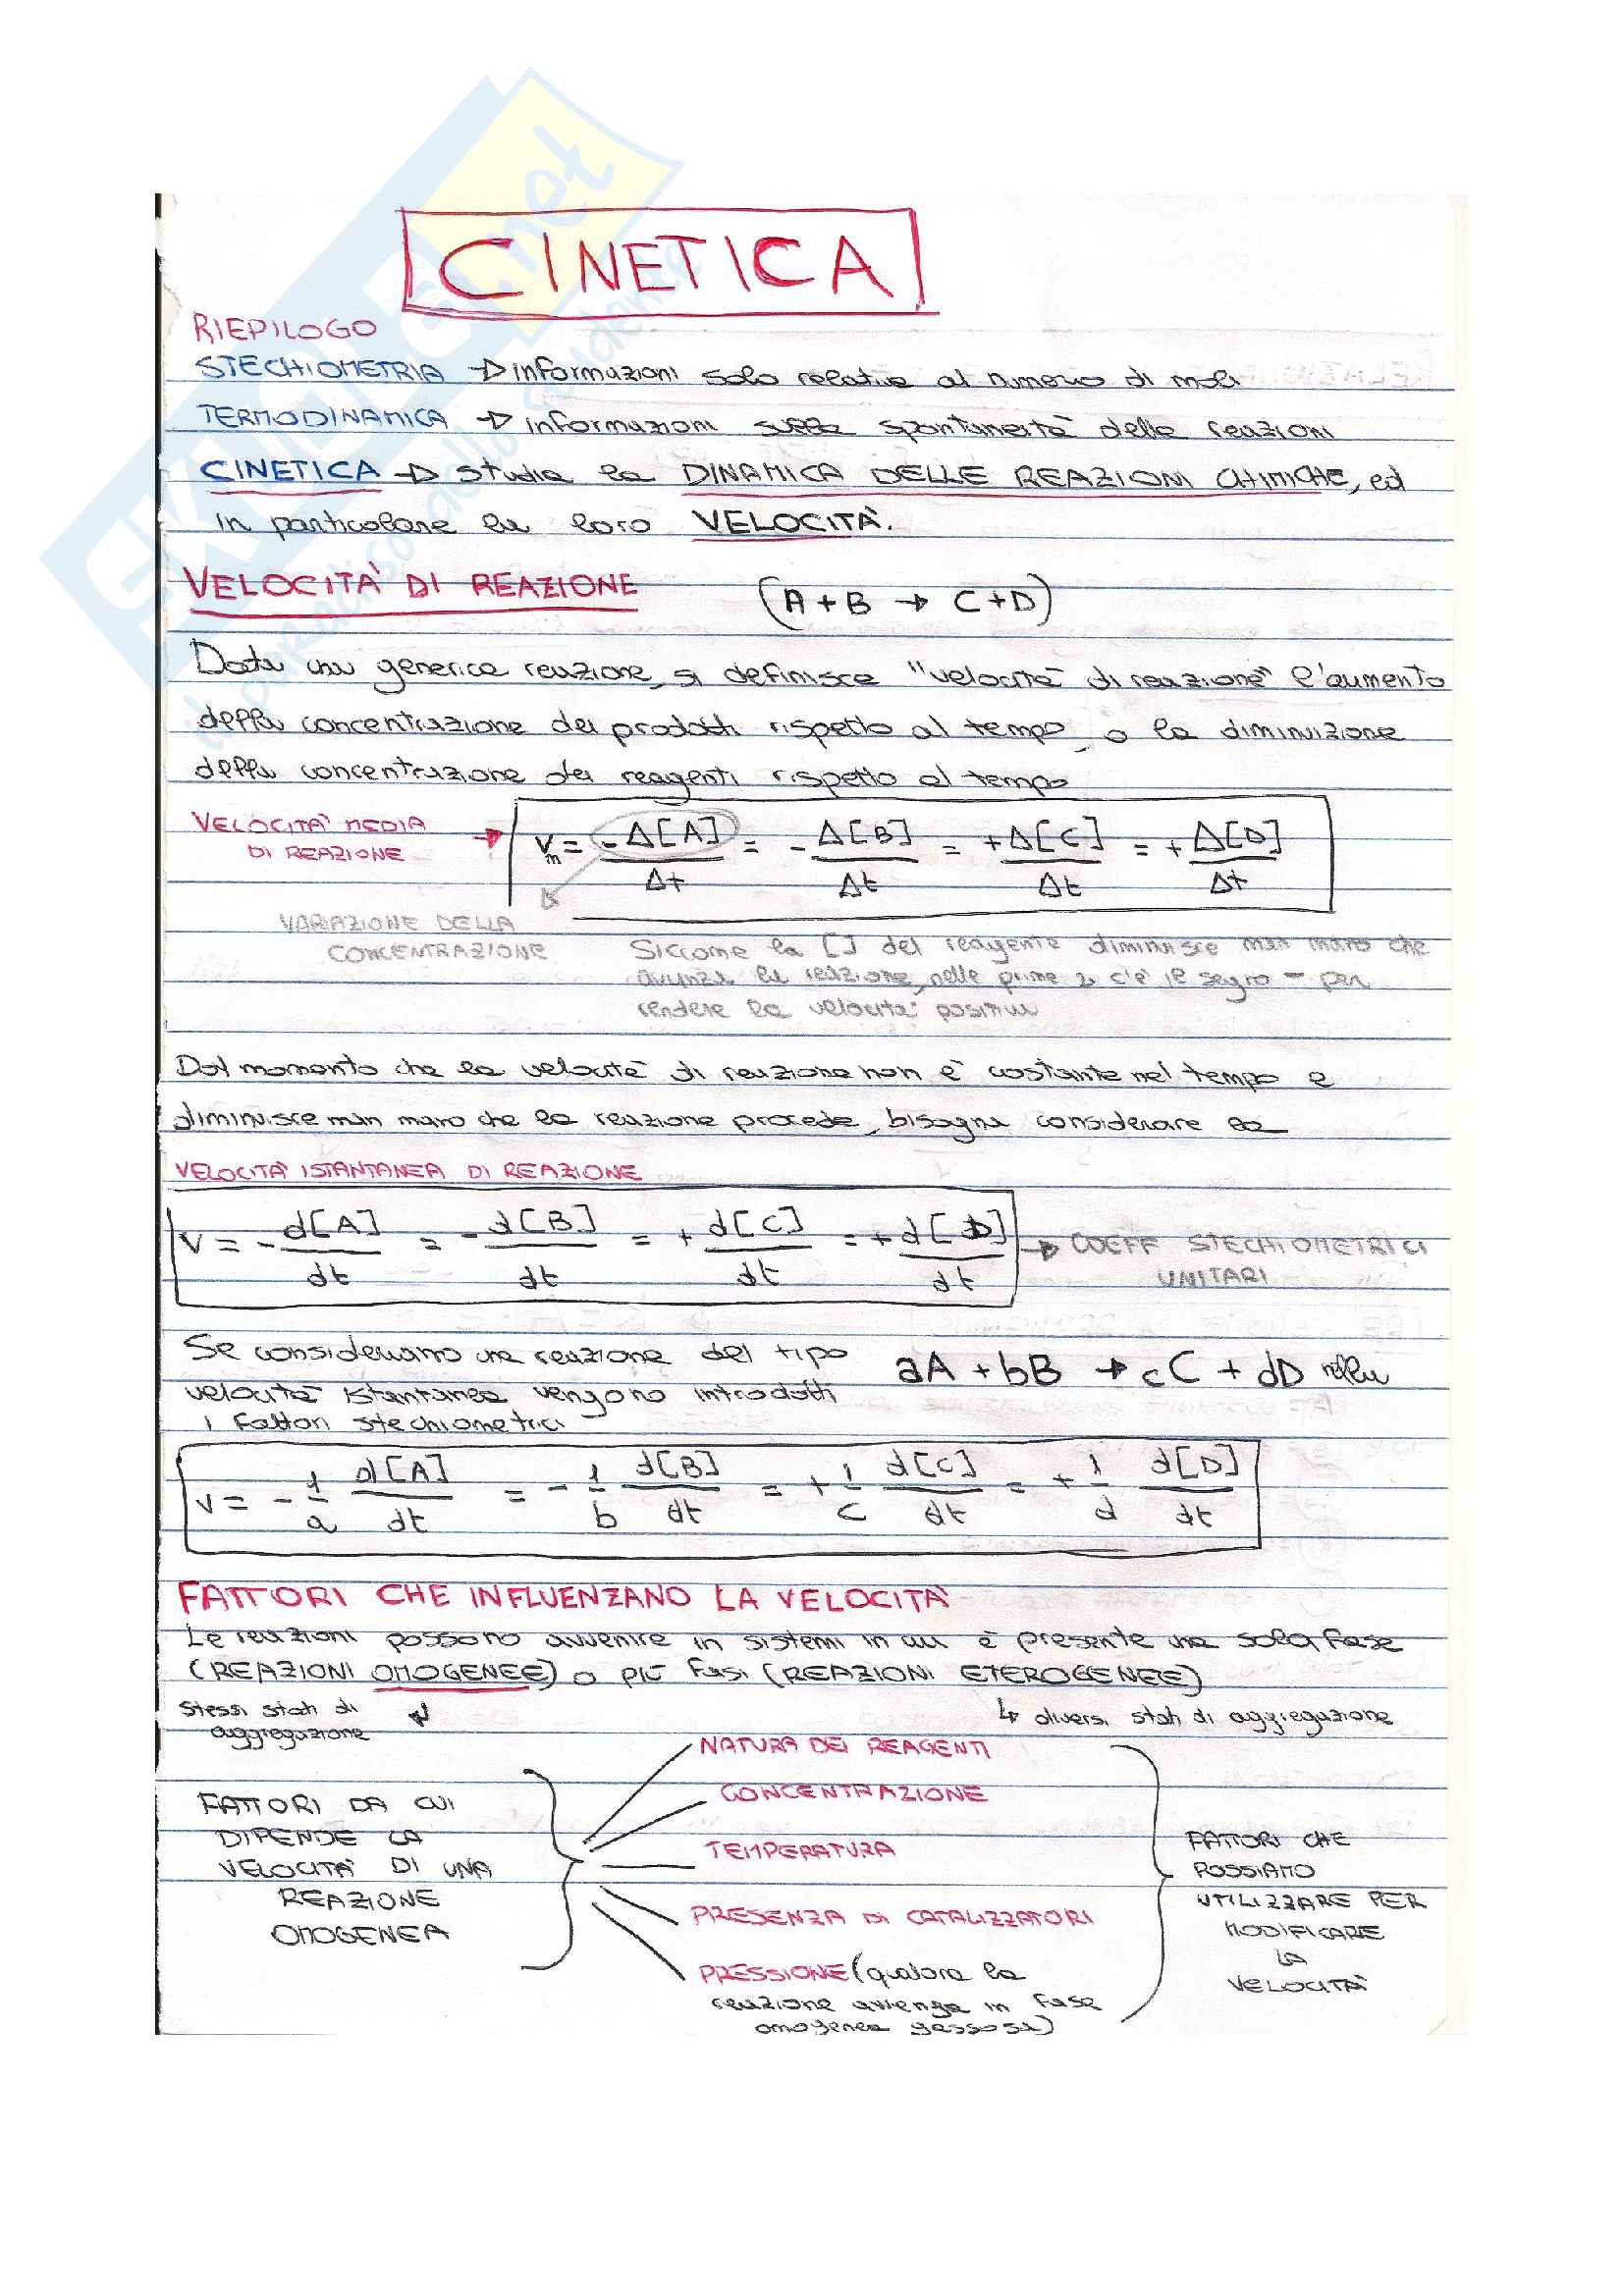 CINETICA
RIEPILOGO
STECHIOMETRIA → informazioni solo relative al numero di moli
TERMODINAMICA → informazioni sulla spontaneità delle reazioni
CINETICA → studia la DINAMICA DELLE REAZIONI CHIMICHE, ed
in particolare la loro VELOCITÀ.
VELOCITÀ DI REAZIONE (A + B → C + D)
Data una generica reazione, si definisce "velocità di reazione" l'aumento
della concentrazione dei prodotti rispetto al tempo, o la diminuizione
della concentrazione dei reagenti rispetto al tempo
VELOCITÀ MEDIA
DI REAZIONE → Vm = -Δ[A]/Δt = -Δ[B]/Δt = +Δ[C]/Δt = +Δ[D]/Δt
VARIAZIONE DELLA
CONCENTRAZIONE
Siccome la [] del reagente diminuisce man mano che
avanza la reazione, nelle prime 2 c'è il segno - per
rendere la velocità positiva
Dal momento che la velocità di reazione non è costante nel tempo e
diminuisce man mano che la reazione procede, bisogna considerare la
VELOCITÀ ISTANTANEA DI REAZIONE
V = -d[A]/dt = -d[B]/dt = +d[C]/dt = +d[D]/dt → COEFF STECHIOMETRICI
UNITARI
Se consideriamo una reazione del tipo aA + bB → cC + dD nella
velocità istantanea vengono introdotti
i fattori stechiometrici
V = -1/a d[A]/dt = -1/b d[B]/dt = +1/c d[C]/dt = +1/d d[D]/dt
FATTORI CHE INFLUENZANO LA VELOCITÀ
Le reazioni possono avvenire in sistemi in cui è presente una sola fase
(REAZIONI OMOGENEE) o più fasi (REAZIONI ETEROGENEE)
stessi stati di
aggregazione
↳ diversi stati di aggregazione
FATTORI DA CUI
DIPENDE LA
VELOCITÀ DI UNA
REAZIONE
OMOGENEA
NATURA DEI REAGENTI
CONCENTRAZIONE
TEMPERATURA
PRESENZA DI CATALIZZATORI
PRESSIONE (qualora la
reazione avvenga in fase
omogenea gassosa)
FATTORI CHE
POSSIAMO
UTILIZZARE PER
MODIFICARE
LA
VELOCITÀ